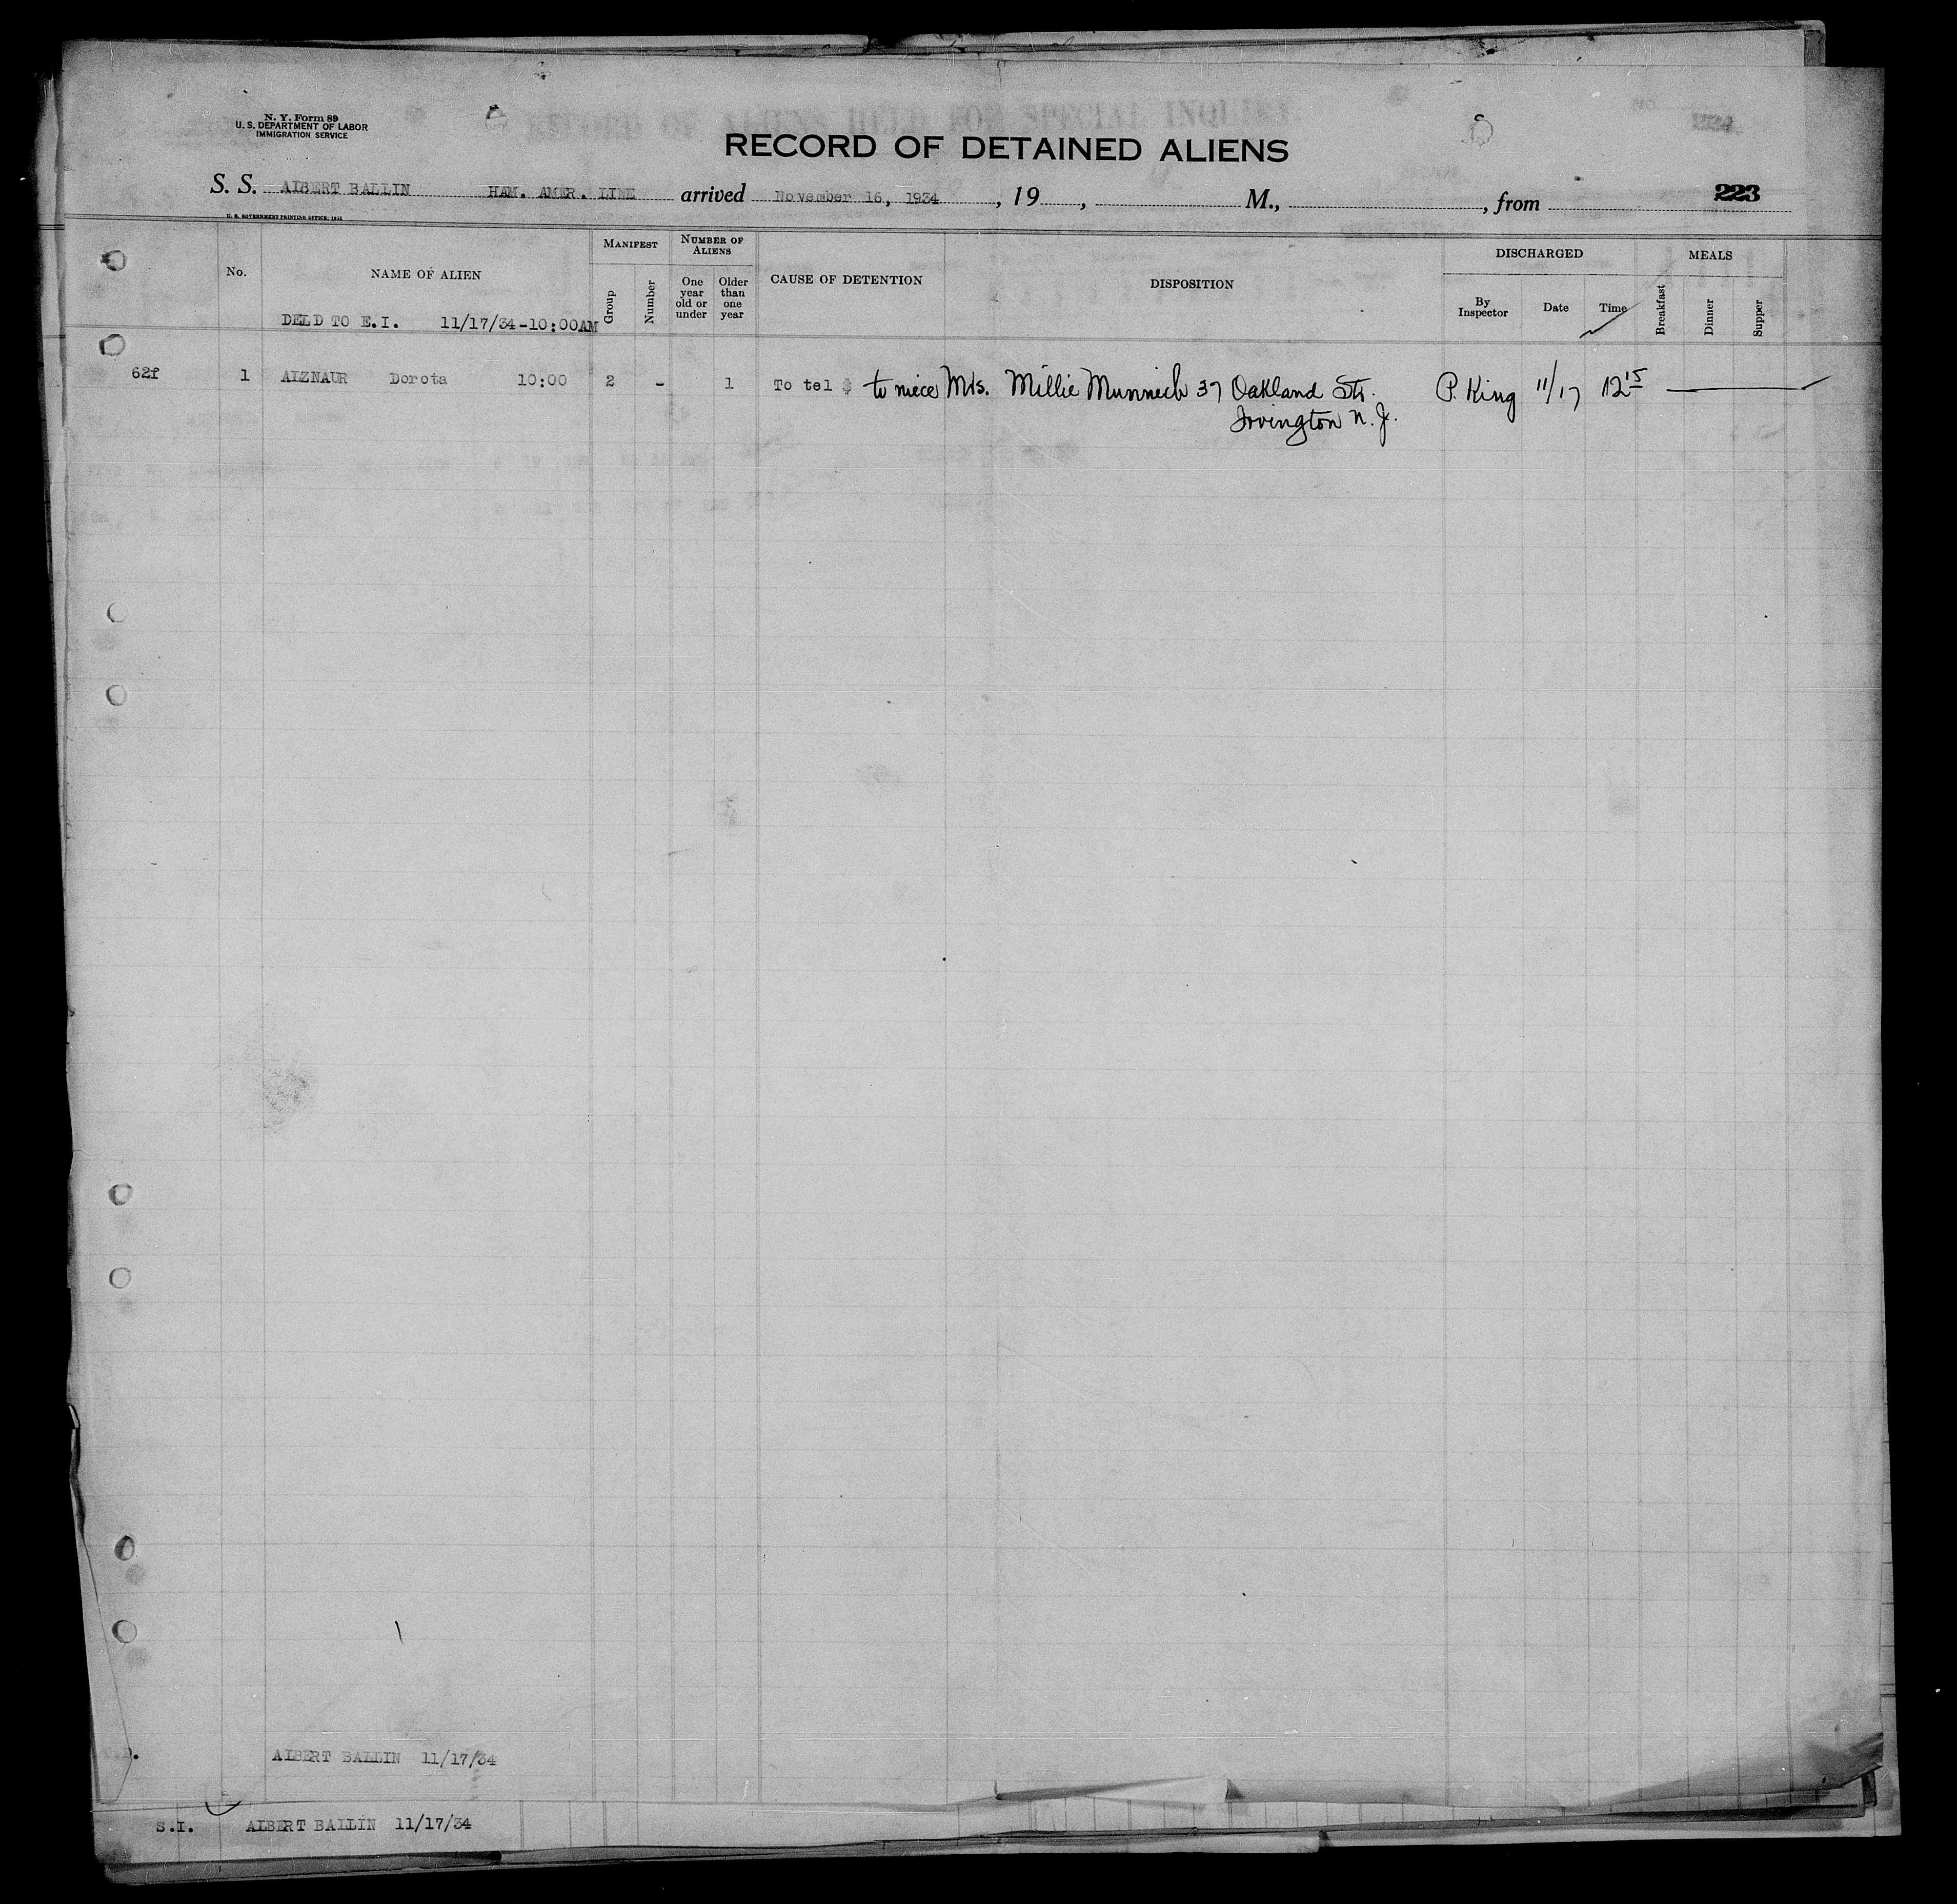 N. Y. Form 89
U. S. DEPARTMENT OF LABOR
IMMIGRATION SERVICE
RECORD OF DETAINED ALIENS
S. S. ALBERT BALLIN HAM. AMER. LINE arrived November 16, 1934, 19, M., , from 223
U. S. GOVERNMENT PRINTING OFFICE:
No.
NAME OF ALIEN
MANIFEST
Group
Number
NUMBER OF ALIENS
One year old or under
Older than one year
CAUSE OF DETENTION
DISPOSITION
DISCHARGED
By Inspector
Date
Time
MEALS
Breakfast
Dinner
Supper
DELD TO E.I. 11/17/34-10:00AM
62f 1 AIZNAUR Dorota 10:00 2 - 1 To tel $ to niece Mrs. Millie Munnich 37 Oakland Str. P. King 11/17 12 15
Irvington N. J.
ALBERT BALLIN 11/17/34
S.I. ALBERT BALLIN 11/17/34